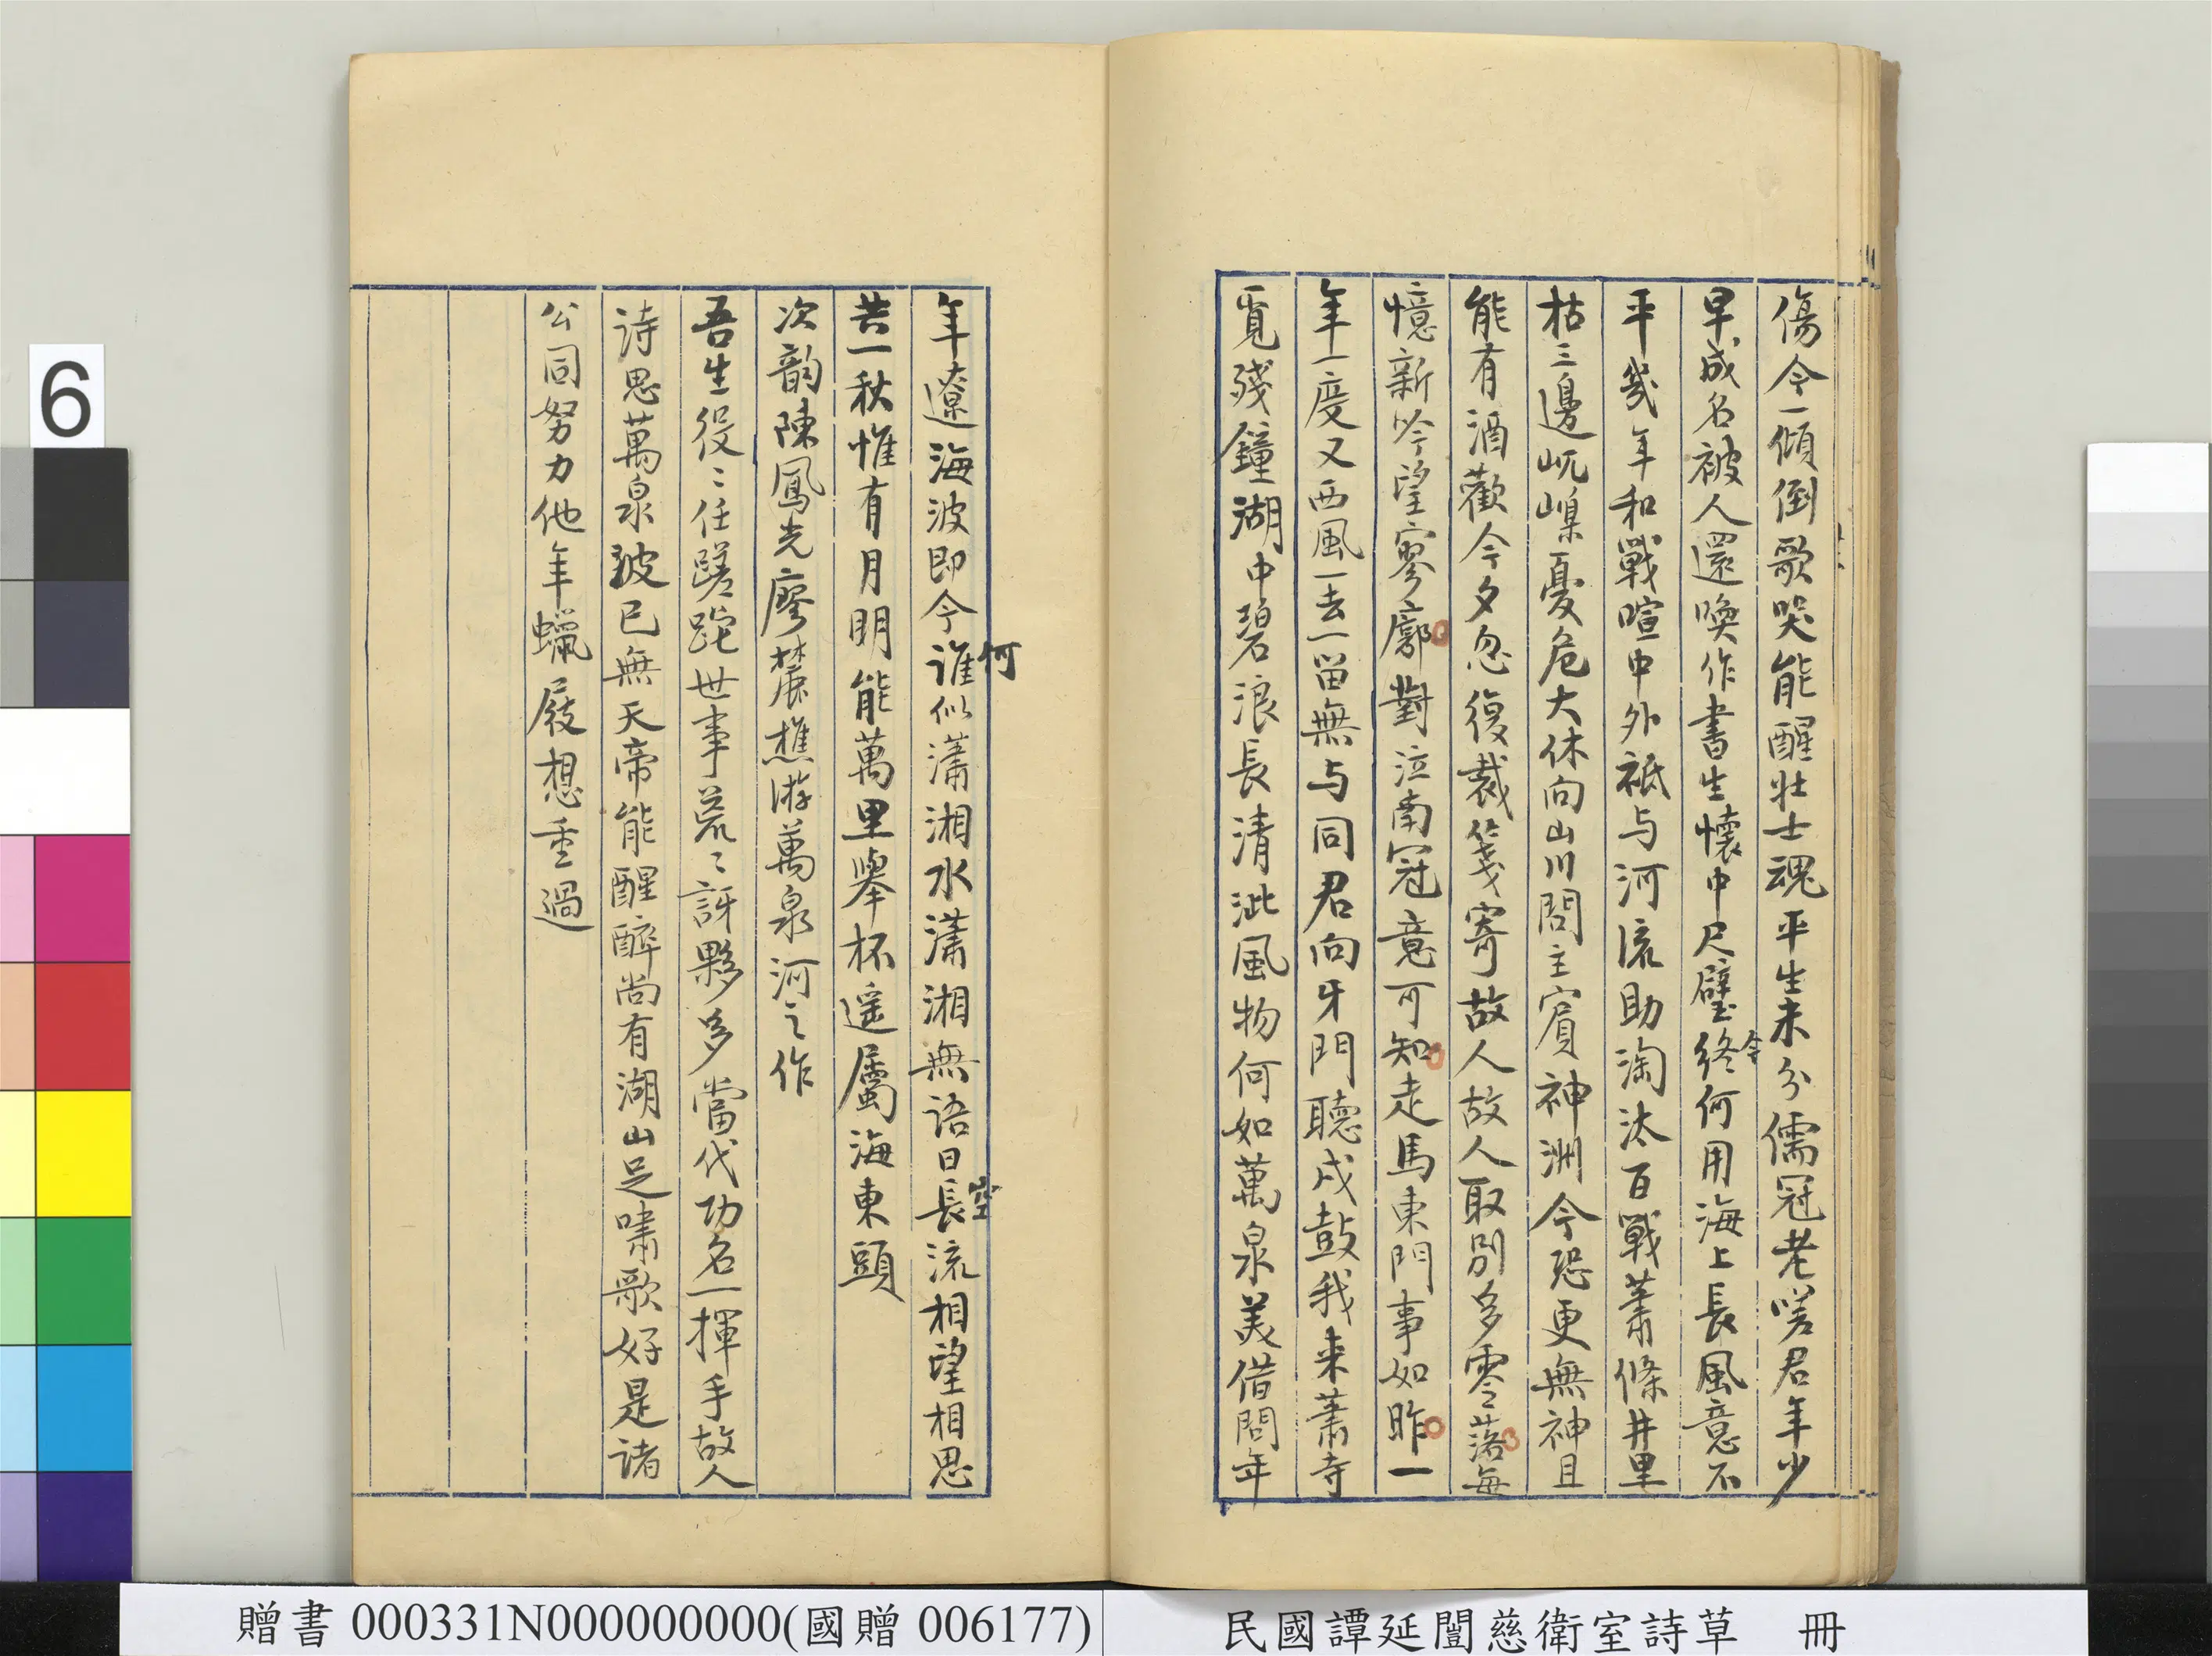 傷今一傾倒歌哭能醒壯士魂平生未分儒冠老嗟君年少
早成名被人還喚作書生懷中尺璧終何用海上長風意不
今
平幾年和戰喧中外祗与河流助淘汰百戰蕭條井里
枯三邊屼嵲憂危大休向山川問主賓神洲今恐更無神且
能有酒歡今夕忽復裁箋寄故人故人取別多零落每
憶新吟望寥廓對泣南冠意可知走馬東門事如昨一
年一度又西風一去一留無与同君向牙門聽戍鼓我来蕭寺
覓殘鐘湖中碧浪長清泚風物何如萬泉美借問年
年遼海波即今誰似瀟湘水瀟湘無語日長流相望相思
何
空
共一秋惟有月明能萬里舉杯遥屬海東頭
次韵陳鳳光廖麓樵游萬泉河之作
吾生役々任蹉跎世事荒々訝夥多當代功名一揮手故人
詩思萬泉波已無天帝能醒醉尚有湖山足嘯歌好是諸
公同努力他年蠟屐想重過
6
贈書 000331N000000000(國贈 006177)
民國譚延闓慈衛室詩草 冊